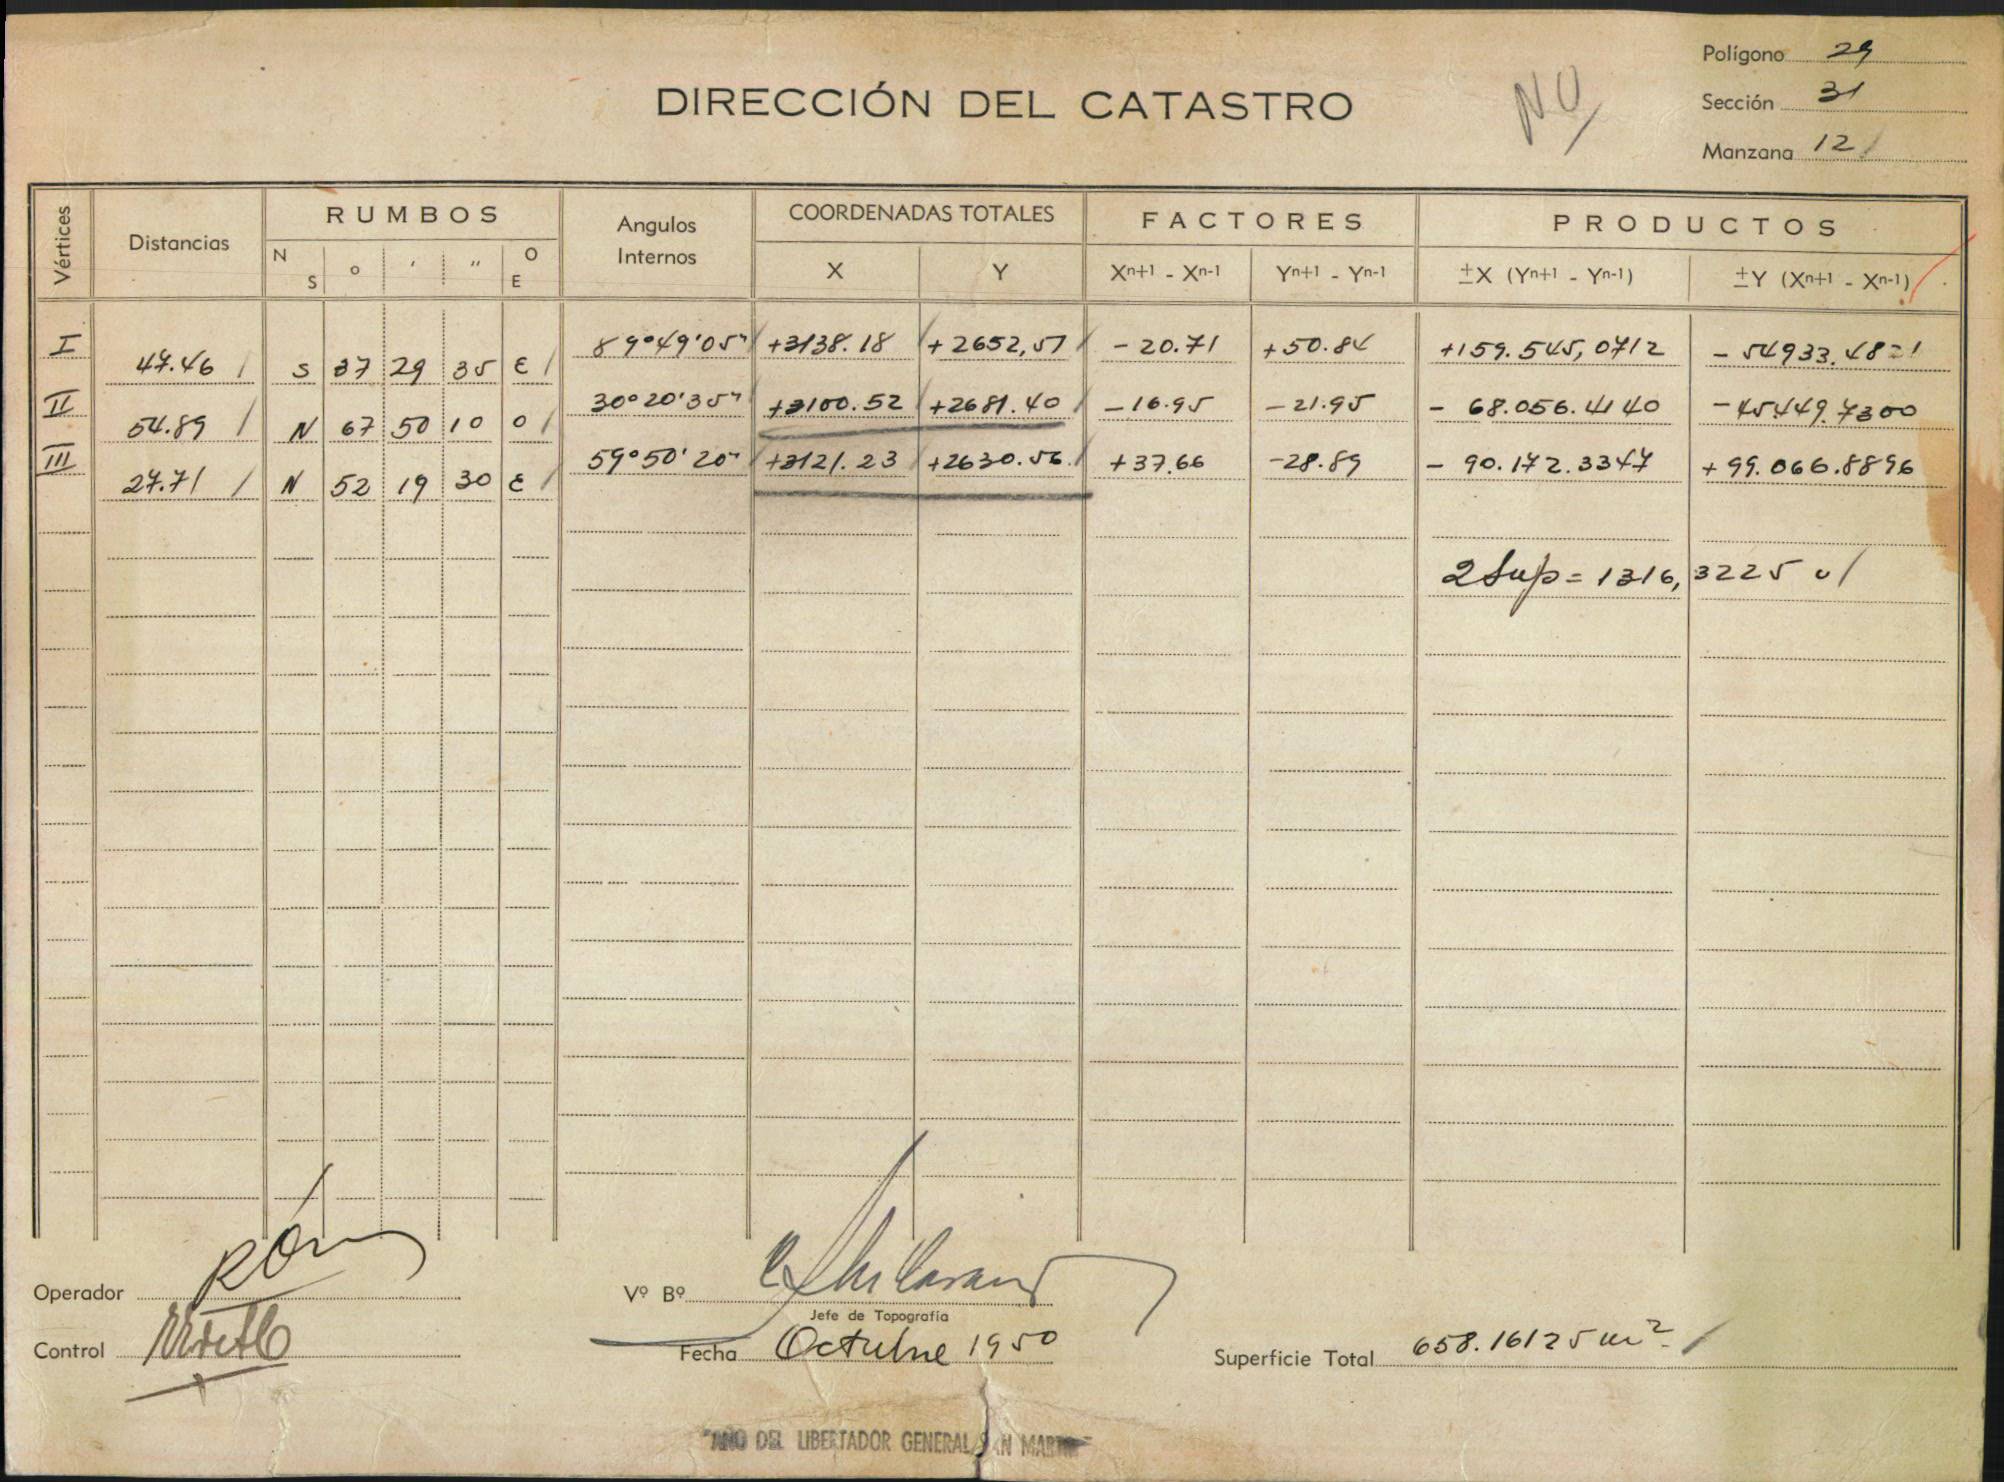 Polígono 29
DIRECCIÓN DEL CATASTRO NO Sección 31
Manzana 12
Vértices Distancias RUMBOS Angulos Internos COORDENADAS TOTALES FACTORES PRODUCTOS
N S o ' " O E X Y Xn+1 - Xn-1 Yn+1 - Yn-1 ±X (Yn+1 - Yn-1) ±Y (Xn+1 - Xn-1)
I 89°49'05" +3138.18 +2652,51 -20.71 +50.84 +159.545,0712 -54933.4821
47.46 S 37 29 35 E
II 30°20'35" +3100.52 +2681.40 -16.95 -21.95 -68.056.4140 -45449.7300
54.89 N 67 50 10 O
III 59°50'20" +3121.23 +2630.56 +37.66 -28.89 -90.172.3347 +99.066.8896
27.71 N 52 19 30 E
2 Sup = 1316,3225
Operador Vº Bº
Jefe de Topografía
Control Fecha Octubre 1950 Superficie Total 658.16125 m²
"AÑO DEL LIBERTADOR GENERAL SAN MARTIN"